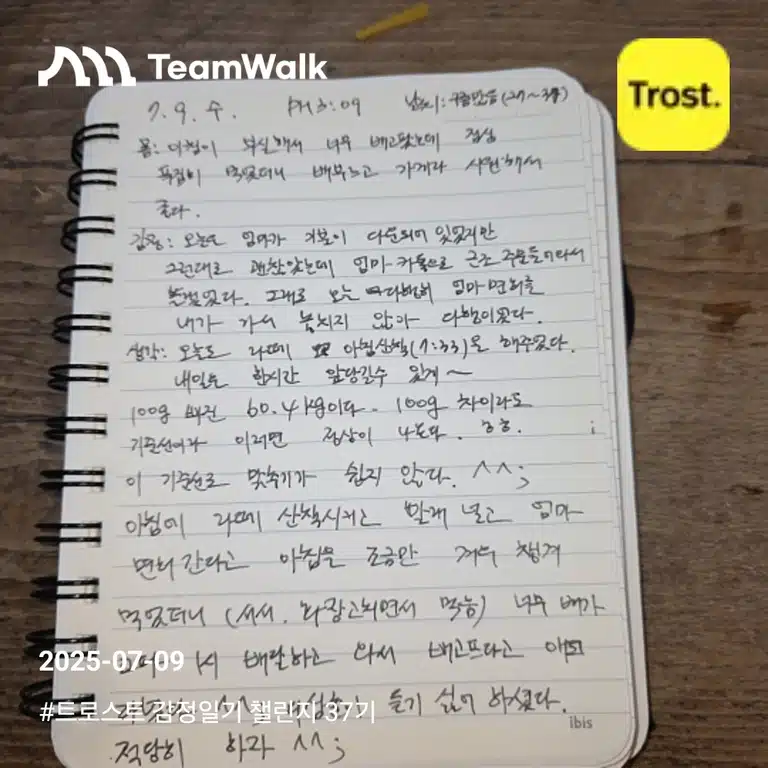 TeamWalk
Trost.
7. 9. 수. PM 3:09 날씨: 구름많음(27~37)
몸: 아침이 부실해서 너무 배고팠는데 점심
푹집이 먹었더니 배부르고 가게라 시원해서
좋다.
감정: 오늘도 엄마가 기분이 다운되어 있었지만
그런대로 괜찮았는데 엄마 카톡으로 근조 주문들어와서
그래도 오늘 엄마 면회를
내가 가서 놓치지 않아 다행이었다.
생각: 오늘도 라떼 아침산책(7:33)을 해주었다.
내일은 한시간 앞당길수 있게~
100g 빠진 60.4kg이다. 100g 차이라도
기준선이라 이러면 정상이 나온다. ㅎㅎ.
이 기준선로 맞추기가 쉽지 않다. ^^;
아침에 라떼 산책시키고 빨래 널고 엄마
면회 간다고 아침을 조금만 겨우 챙겨
먹었더니 (서서. 화장고치면서 먹음) 너무 배가
1시 배달하고 와서 배고프다고
듣기 싫어 하셨다.
적당히 하자 ^^;
ibis
2025-07-09
#트로스트 감정일기 챌린지 37기